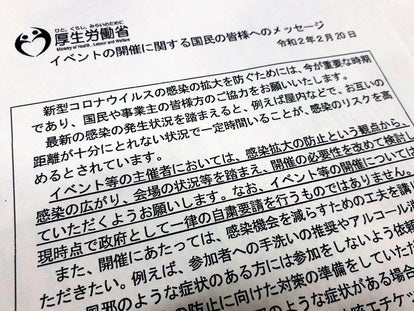 ひと、くらし、みらいのために
厚生労働省
Ministry of Health, Labour and Welfare
イベントの開催に関する国民の皆様へのメッセージ
令和2年2月20日
新型コロナウイルスの感染の拡大を防ぐためには、今が重要な時期
であり、国民や事業主の皆様方のご協力をお願いいたします。
最新の感染の発生状況を踏まえると、例えば屋内などで、お互いの
距離が十分にとれない状況で一定時間いることが、感染のリスクを高
めるとされています。
イベント等の主催者においては、感染拡大の防止という観点から、
感染の広がり、会場の状況等を踏まえ、開催の必要性を改めて検討し
ていただくようお願いします。なお、イベント等の開催については、
現時点で政府として一律の自粛要請を行うものではありません。
また、開催にあたっては、感染機会を減らすための工夫を講
ただきたい。例えば、参加者への手洗いの推奨やアルコール消
風邪のような症状のある方には参加をしないよう依頼
の防止に向けた対策の準備をしていた
のような症状がある場合